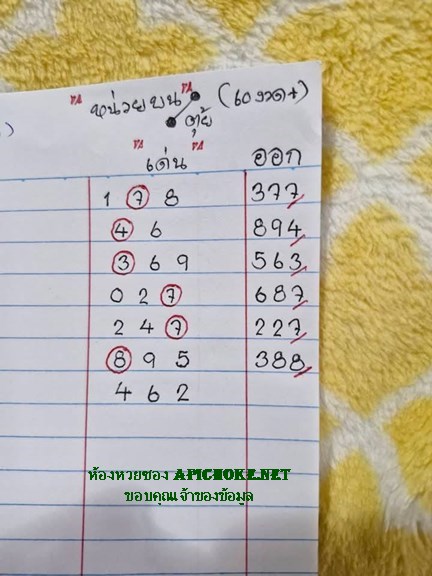 หน่วยบน (60 งวด+)
ตุ้ย
)
เด่น ออก
1 7 8 377
4 6 894
3 6 9 563
0 2 7 687
2 4 7 227
8 9 5 388
4 6 2
ห้องหวยซอง APICHOKE.NET
ขอบคุณเจ้าของข้อมูล